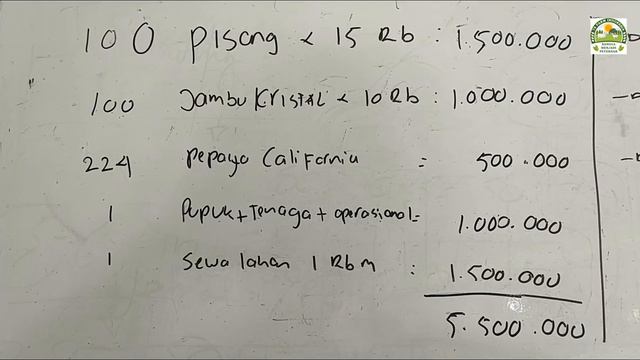 100 Pisang x 15 Rb : 1.500.000
100 Jambu Kristal x 10 Rb : 1.000.000
224 Pepaya California = 500.000
1 Pupuk + Tenaga + operasional = 1.000.000
1 Sewa lahan 1 Rb m : 1.500.000
5.500.000